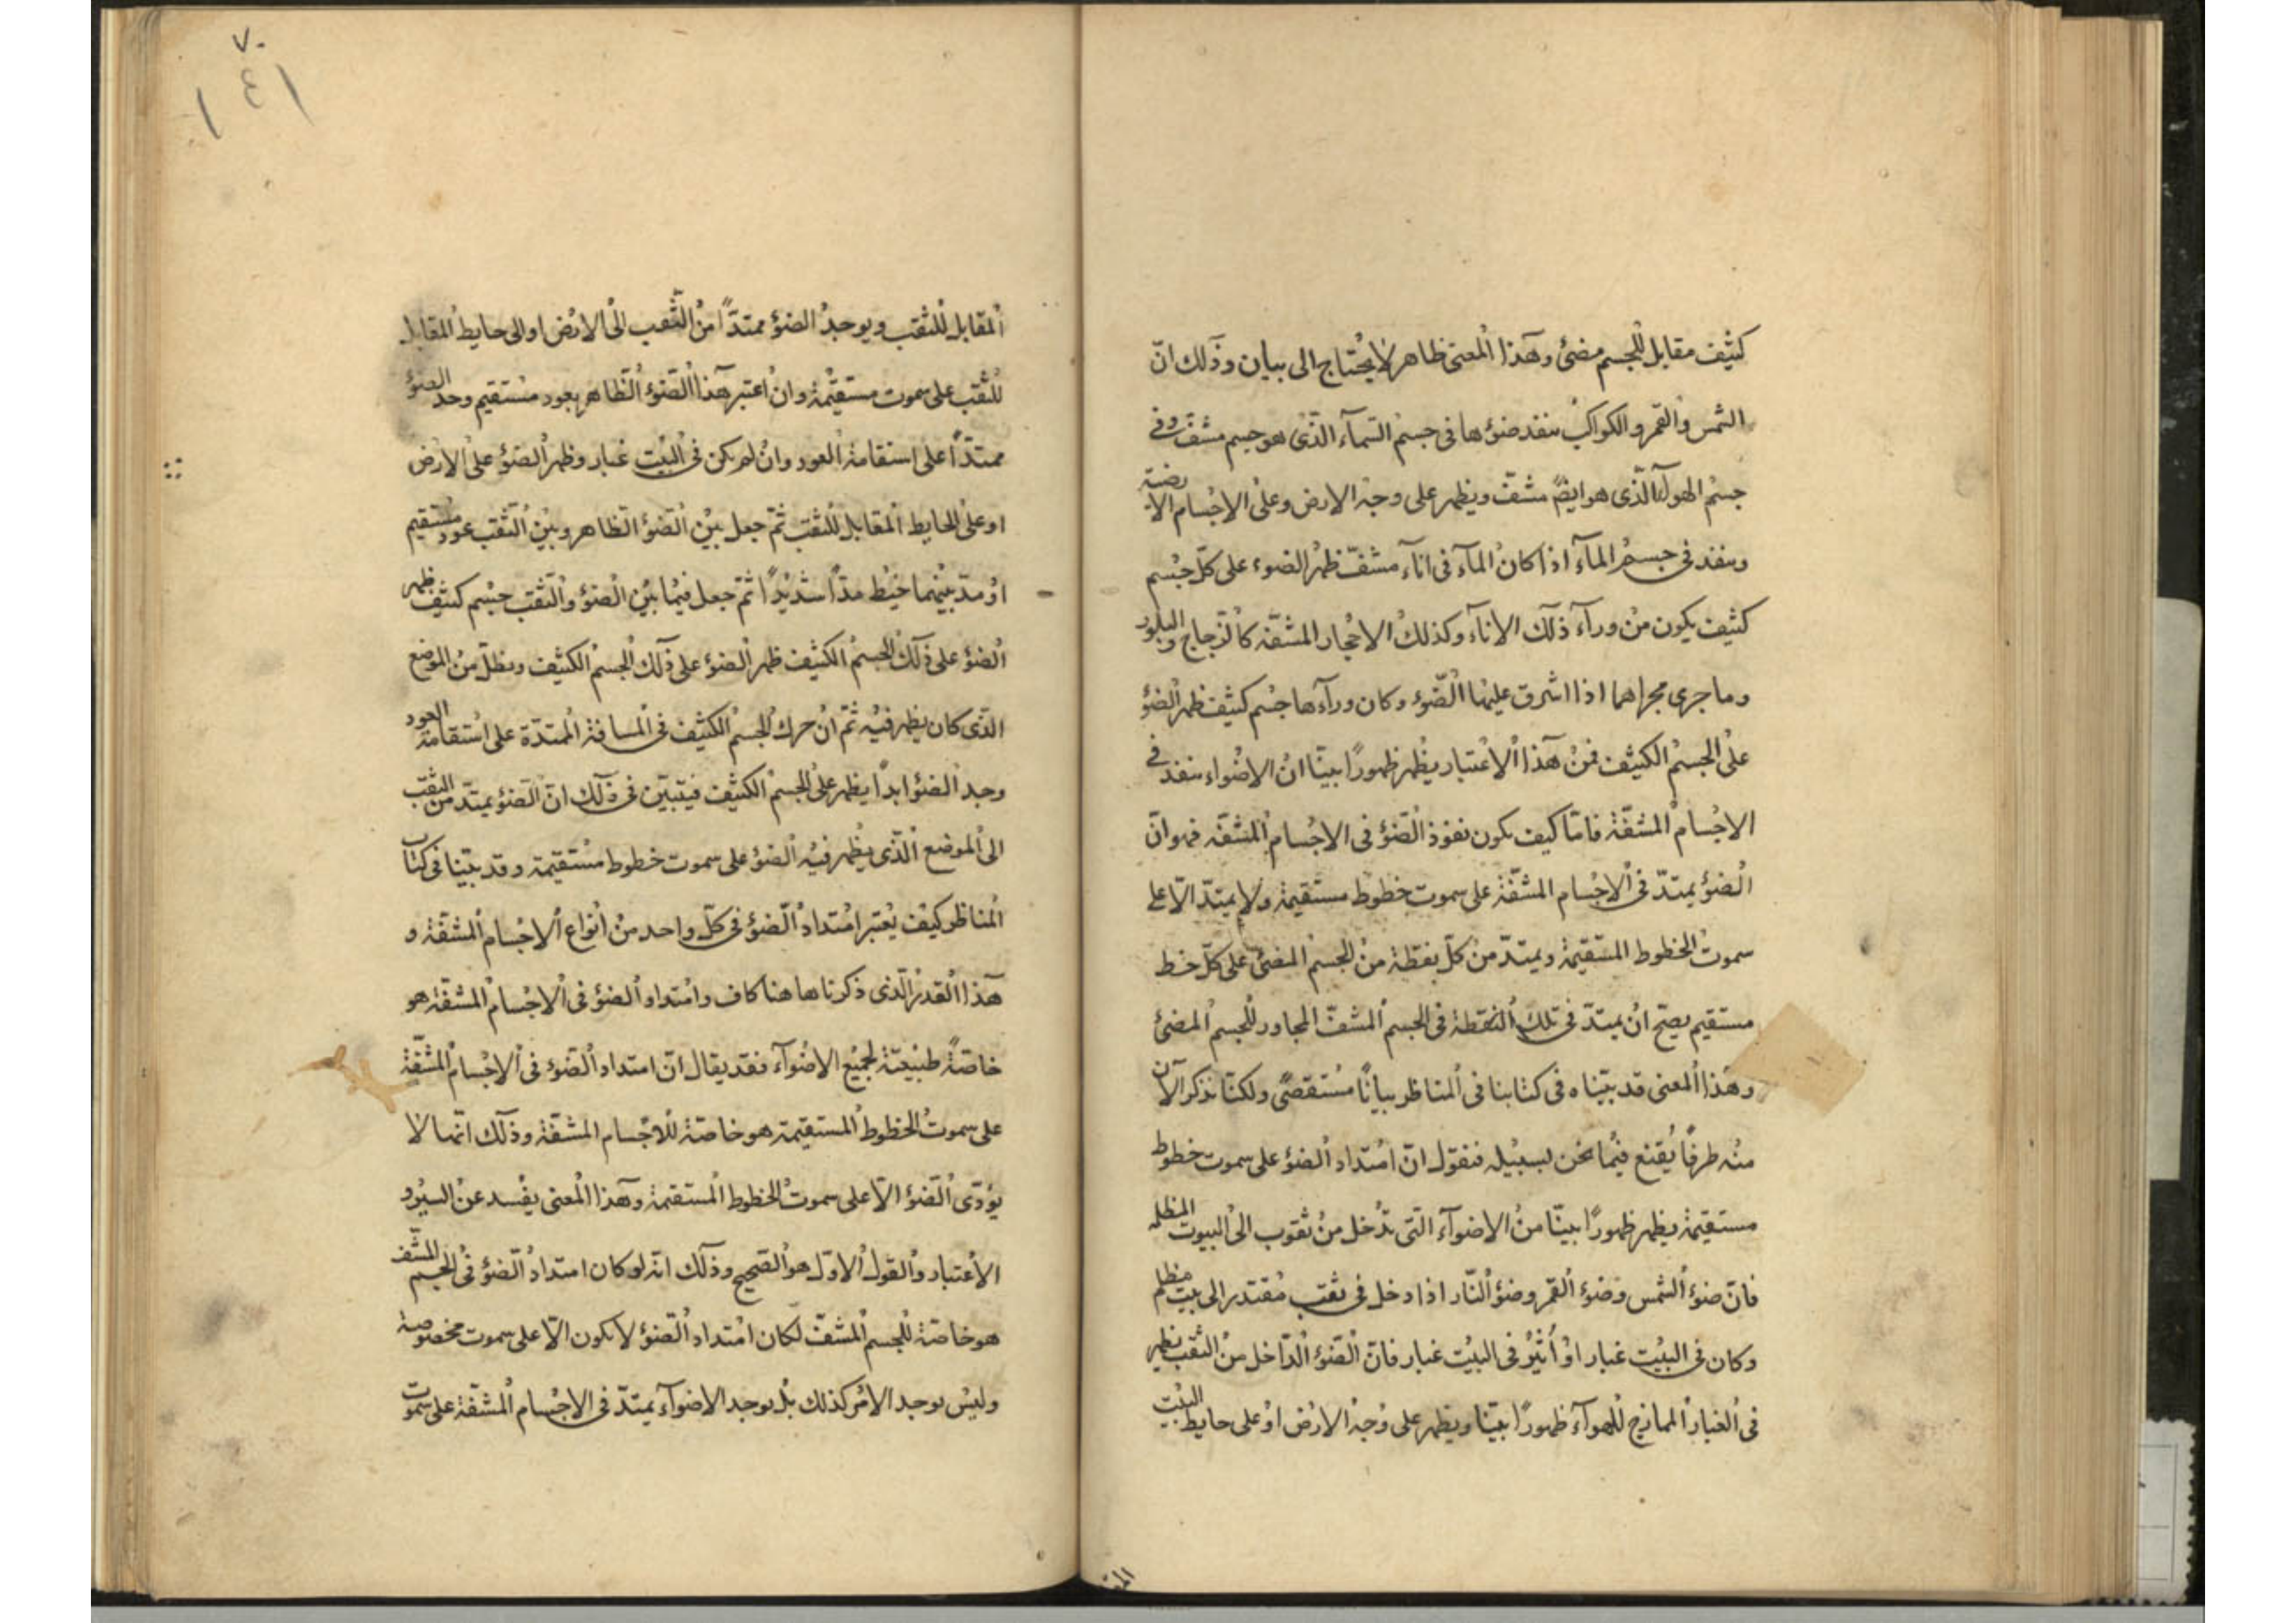 كثيف مقابل للجسم مضئ وهذا المعنى ظاهر لا يحتاج الى بيان وذلك انّ
الشمس والقمر والكواكب ينفذ ضوؤها فى جسم السمآء الذى هو جسم مشفّ وفى
جسم الهوآ الذى هو ايضً مشفّ ويظهر على وجه الارض وعلى الاجسام الارضية
وينفذ فى جسم المآء اذا كان المآء فى انآء مشفّ ظهر الضوء على كلّ جسم
كثيف يكون من ورآء ذلك الانآء وكذلك الاحجار المشفّه كالزجاج والبلور
وما جرى مجراهما اذا اشرق عليها الضوء وكان ورآءها جسم كثيف ظهر الضؤ
على الجسم الكثيف فمن هذا الاعتبار يظهر ظهورًا بينًا ان الاضواء ينفذ فى
الاجسام المشفّة فامّا كيف يكون نفوذ الضؤ فى الاجسام المشفّه فهو انّ
الضؤ يمتدّ فى الاجسام المشفّة على سموت خطوط مستقيمة ولا يمتدّ الّا على
سموت الخطوط المستقيمة ويمتدّ من كلّ نقطة من الجسم المضئ على كلّ خط
مستقيم يصح ان يمتدّ فى تلك النقطة فى الجسم المشفّ المجاور للجسم المضئ
وهذا المعنى قد بيّناه فى كتابنا فى المناظر بيانًا مستقصىً ولكنّا نذكر الآن
منه طرفًا يقنع فيما نحن لسبيله فنقول انّ امتداد الضؤ على سموت خطوط
مستقيمة يظهر ظهورًا بينّا من الاضوآء التى تدخل من ثقوب الى البيوت المظلمه
فانّ ضوء الشمس وضوء القمر وضوء النّار اذا دخل فى ثقب مقتدر الى بيت مظلم
وكان فى البيت غبار او أثير فى البيت غبار فانّ الضوء الدّاخل من الثقب يظهر
فى الغبار الممازج للهوآء ظهورًا بيّنا ويظهر على وجه الارض او على حايط البيت
المقا
٧٠
١٤١
المقابل للثقب ويوجد الضؤ ممتدّاً من الثّقب الى الارض او الى حايط المقابل
للثقب على سموت مستقيمة وان اعتبر هذا الضوء الظاهر بعود مستقيم وجد الضؤ
ممتدّاً على استقامة العود وان لم يكن فى البيت غبار وظهر الضؤ على الارض
او على الحايط المقابل للثقب ثمّ جعل بين الضؤ الظاهر وبين الثقب عود مستقيم
او مدّ بينهما خيط مدّا شديدًا ثمّ جعل فيما بين الضؤ والثقب جسم كثيف ظهر
الضؤ على ذلك الجسم الكثيف ظهر الضؤ على ذلك الجسم الكثيف وبطل من الموضع
الذى كان يظهر فيه ثمّ ان حرك الجسم الكثيف فى المسافة الممتدّة على استقامة العود
وجد الضؤ ابدًا يظهر على الجسم الكثيف فيتبيّن فى ذلك انّ الضؤ يمتدّ من الثقب
الى الموضع الذى يظهر فيه الضؤ على سموت خطوط مستقيمة وقد بيّنا فى كتاب
المناظر كيف يعتبر امتداد الضؤ فى كلّ واحد من انواع الاجسام المشفّة و
هذا القدر الذى ذكرنا هاهنا كاف وامتداد الضؤ فى الاجسام المشفّة هو
خاصّةً طبيعيّة لجميع الاضوآء فقد يقال انّ امتداد الضوء فى الاجسام المشفّة
على سموت الخطوط المستقيمة هو خاصّة للاجسام المشفّة وذلك انّها لا
يؤدّى الضوء الّا على سموت الخطوط المستقيمة وهذا المعنى يفسد عن السبر و
الاعتبار والقول الاوّل هو الصحيح وذلك انّه لو كان امتداد الضؤ فى الجسم المشف
هو خاصّة للجسم المشفّ لكان امتداد الضؤ لا يكون الّا على سموت مخصوصة
وليس يوجد الامر كذلك بل يوجد الاضوآء يمتدّ فى الاجسام المشفّة على سموت